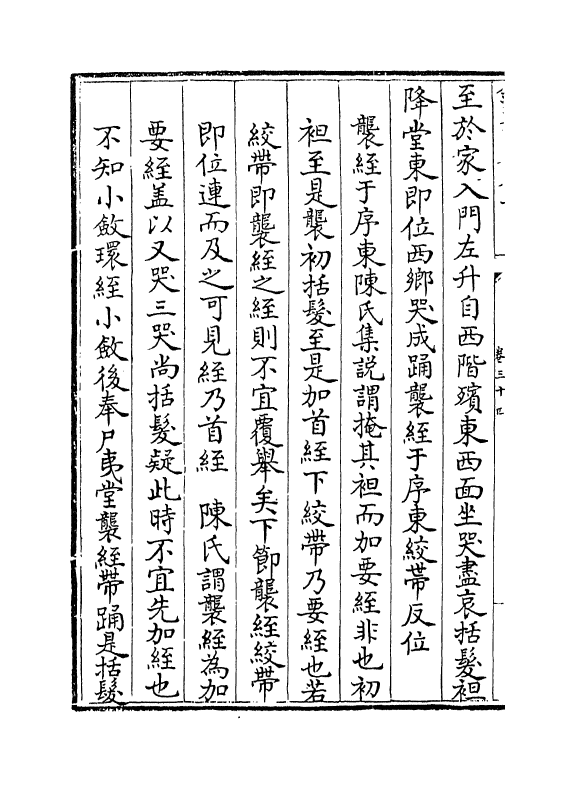 卷三十四
至於家入門左升自西階殯東西面坐哭盡哀括髮袒
降堂東即位西鄉哭成踊襲絰于序東絞帶反位
襲絰于序東陳氏集説謂掩其袒而加要絰非也初
袒至是襲初括髮至是加首絰下絞帶乃要絰也若
絞帶即襲絰之絰則不宜覆舉矣下節襲絰絞帶
即位連而及之可見絰乃首絰　陳氏謂襲絰為加
要絰盖以又哭三哭尚括髮疑此時不宜先加絰也
不知小斂環絰小斂後奉尸夷堂襲絰帶踊是括髮